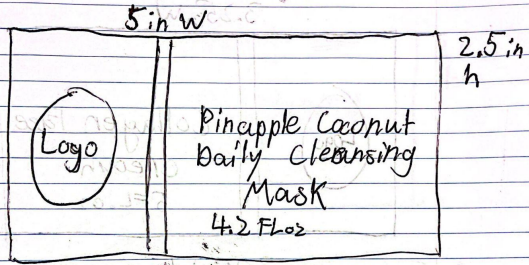 5 in W
2.5 in
h
Logo
Pinapple Coconut
Daily Cleansing
Mask
4.2 FLoz